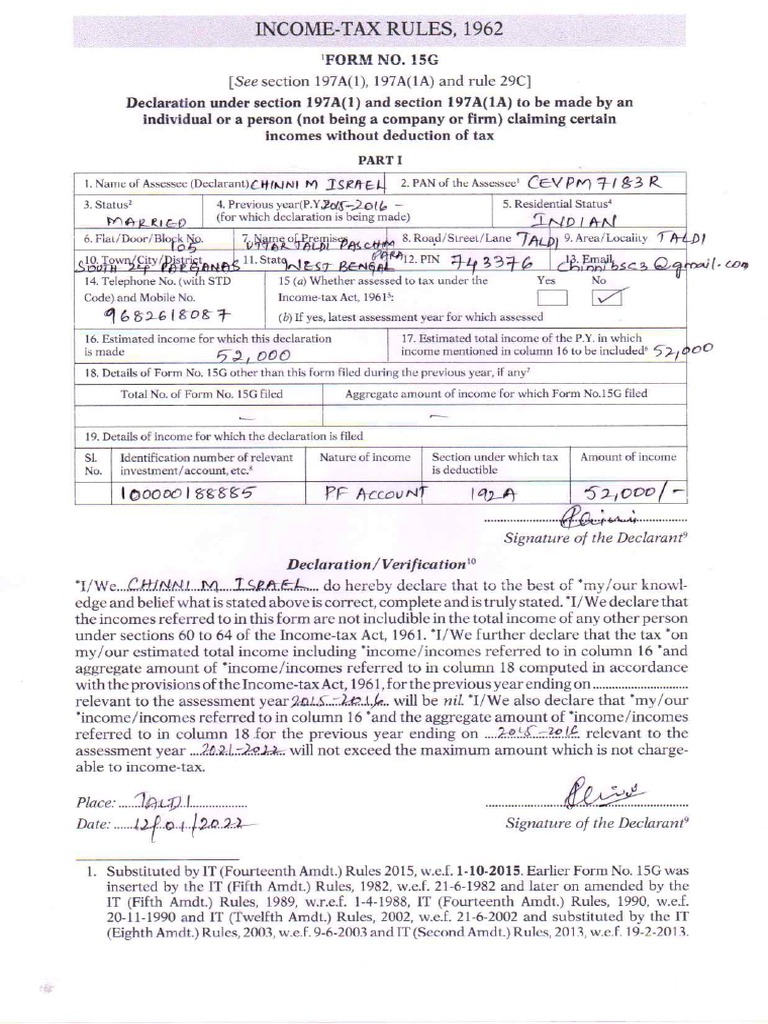 INCOME-TAX RULES, 1962
¹FORM NO. 15G
[See section 197A(1), 197A(1A) and rule 29C]
Declaration under section 197A(1) and section 197A(1A) to be made by an
individual or a person (not being a company or firm) claiming certain
incomes without deduction of tax
PART I
1. Name of Assessee (Declarant) CHINNI M ISRAEL 2. PAN of the Assessee¹ CEVPM7183R
3. Status² MARRIED 4. Previous year(P.Y.)2015-2016 - 5. Residential Status⁴
(for which declaration is being made) INDIAN
6. Flat/Door/Block No. 105 7. Name of Premises UTTAR TALDI PASCHIM PARA 8. Road/Street/Lane TALDI 9. Area/Locality TALDI
10. Town/City/District SOUTH 24 PARGANAS 11. State WEST BENGAL 12. PIN 743376 13. Email chinnibsc3@gmail.com
14. Telephone No. (with STD 15 (a) Whether assessed to tax under the Yes No
Code) and Mobile No. Income-tax Act, 1961⁵: ✓
9682618087 (b) If yes, latest assessment year for which assessed
16. Estimated income for which this declaration 17. Estimated total income of the P.Y. in which
is made 52,000 income mentioned in column 16 to be included⁶ 52,000
18. Details of Form No. 15G other than this form filed during the previous year, if any⁷
Total No. of Form No. 15G filed Aggregate amount of income for which Form No.15G filed
— —
19. Details of income for which the declaration is filed
Sl. Identification number of relevant Nature of income Section under which tax Amount of income
No. investment/account, etc.⁸ is deductible
100000188885 PF ACCOUNT 192A 52,000/-
Signature of the Declarant⁹
Declaration/Verification¹⁰
*I/We CHINNI M ISRAEL do hereby declare that to the best of *my/our knowl-
edge and belief what is stated above is correct, complete and is truly stated. *I/We declare that
the incomes referred to in this form are not includible in the total income of any other person
under sections 60 to 64 of the Income-tax Act, 1961. *I/We further declare that the tax *on
my/our estimated total income including *income/incomes referred to in column 16 *and
aggregate amount of *income/incomes referred to in column 18 computed in accordance
with the provisions of the Income-tax Act, 1961, for the previous year ending on ......................
relevant to the assessment year 2015-2016 will be nil. *I/We also declare that *my/our
*income/incomes referred to in column 16 *and the aggregate amount of *income/incomes
referred to in column 18 for the previous year ending on 2015-2016 relevant to the
assessment year 2021-2022 will not exceed the maximum amount which is not charge-
able to income-tax.
Place: TALDI
Date: 12/01/2022 Signature of the Declarant⁹
1. Substituted by IT (Fourteenth Amdt.) Rules 2015, w.e.f. 1-10-2015. Earlier Form No. 15G was
inserted by the IT (Fifth Amdt.) Rules, 1982, w.e.f. 21-6-1982 and later on amended by the
IT (Fifth Amdt.) Rules, 1989, w.r.e.f. 1-4-1988, IT (Fourteenth Amdt.) Rules, 1990, w.e.f.
20-11-1990 and IT (Twelfth Amdt.) Rules, 2002, w.e.f. 21-6-2002 and substituted by the IT
(Eighth Amdt.) Rules, 2003, w.e.f. 9-6-2003 and IT (Second Amdt.) Rules, 2013, w.e.f. 19-2-2013.